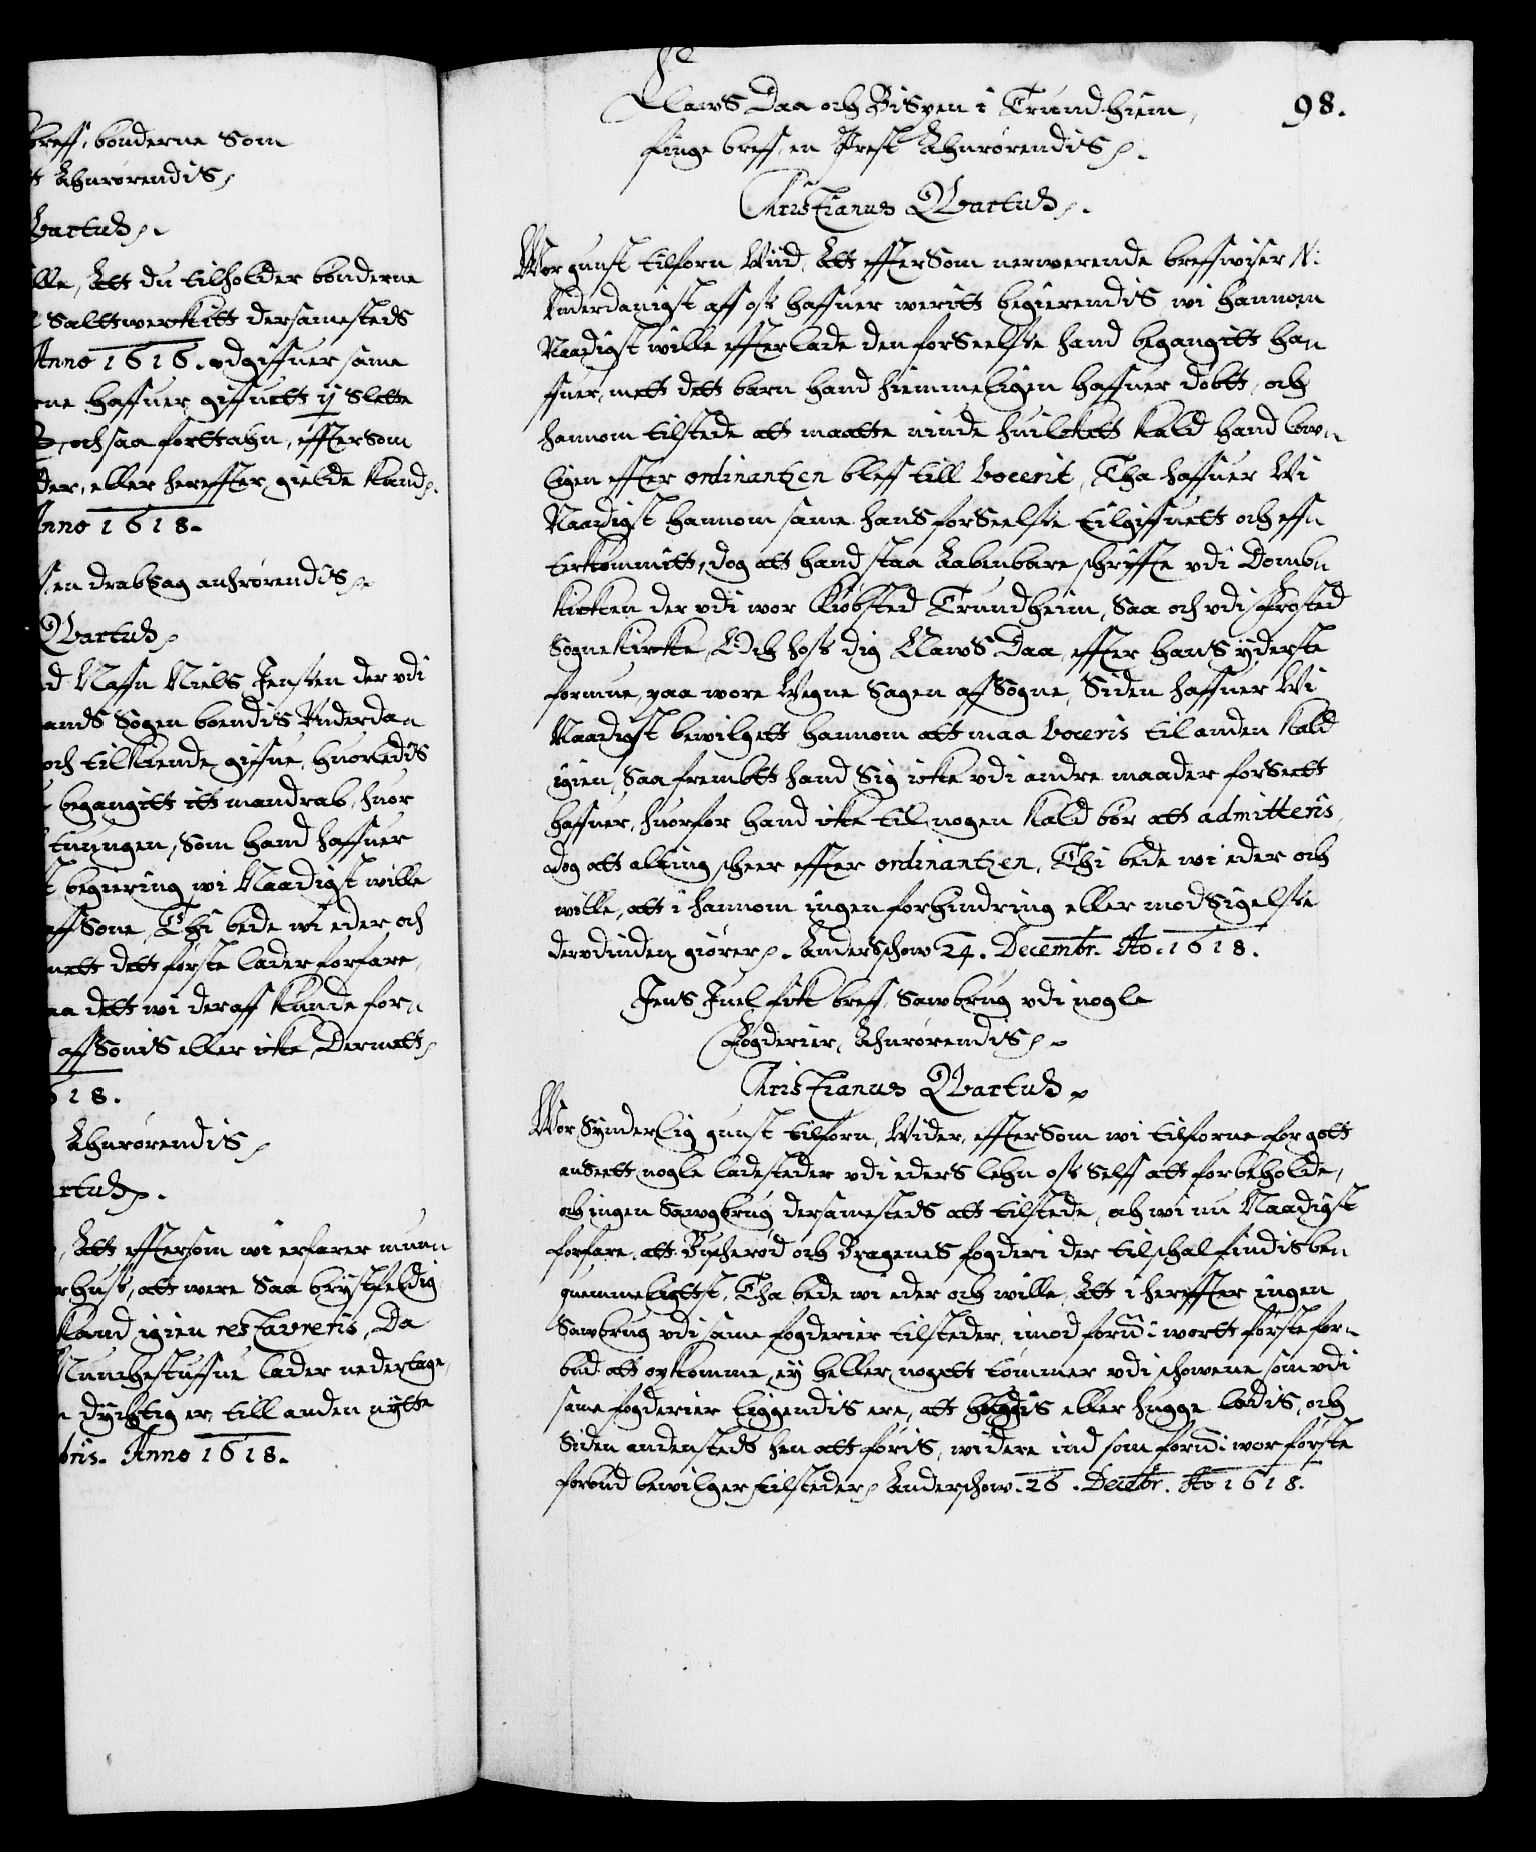 breff, bønderne Som
Ahnrørendis
Qvartus.
ille, Att du tilholder bønderne
Salttwerkitt dersamesteds
Anno 1616. udgiffuer same
rne haffuer giffuett ij Slette
och saa forttahn, efftersom
der, eller hereffter gielde kand.
Anno 1618.
en drabsag anhrørendis
Qvartus
Naffn Niels Jensen der vdi
ands Sogen boendis Vnderda-
och tilkiende giffue, huorledis
begangitt itt mandrab, huor
tuungen, Som hand haffuer
begiering, wi Naadigst wille
affSone, Thi bede wi eder och
mett dett første lader forfare,
dett wi deraff kunde for-
affSonis eller icke Dermett
1618.
Ahnrørendis
Qvartus.
Att effterSom wi erfarer muur
rhus, att were Saa brystfeldig
kand igien restaureris, Da
Munchestuffue lader nedertage,
dychtig er, till anden nytte
bris. Anno 1618.
98.
Claws Daa och Bispen i Trundhiem,
finge breff, en Prest Ahnrørendis.
Christianus Qvartus.
Wor gunst tilforn, Wiid, Att effterSom nerwerende breffwiser N:
Vnderdanigst aff oss haffuer weritt begierendis, wi hannom
Naadigst wille effterlade den forSeelsse hand begangitt ha-
ffuer, mett dett barn hand hiemmeligen haffuer døbtt, och
hannom tilstede att maatte niude huilckett kald hand low-
ligen effter ordinantzen bleff till vocerit, Tha haffuer Wi
Naadigst hannom same hans forSeelsse tilgiffuett och eff-
terkommitt, dog att hand staa Aabenbare schriffte vdi Domb-
kircken der vdi wor Kiøbsted Trundheim, Saa och vdi Frosted
Sognekircke, Och hoss dig Claws Daa, effter hans yderste
formue, paa wore Wegne Sagen affSøgne, Siden haffuer Wi
Naadigst bewilgett hannom att maa voceris til anden kald
igien, Saafrembtt hand Sig icke vdi andre maader forSeett
haffuer, huorfor hand icke til nogen kald bør att admitteris,
dog att alting scheer effter ordinantzen, Thi bede wi eder och
wille, att i hannom ingen forhindring eller modSigelsse
dervdinden giører. Anderschow 24. Decembr. Ao. 1618.
Jens Juel fick breff, Sawbrug vdi nogle
Fogderier, Ahnrørendis.
Christianus Qvartus
Wor Synderlig gunst tilforn, Wider, effterSom wi tilforne for gott
anSeett nogle ladesteder vdi eders lehn oss Selff att forbeholde,
och ingen Sawgbrug dersamesteds att tilstede, och wi nu Naadigst
forfare, att Buscherød och Bragenes fogderi der til schal findis be-
quemmeligtst, Tha bede wi eder och wille, Att i hereffter ingen
Sawbrug vdi same fogderier tilsteder, imod forne: wortt første for-
bud att opkomme, ey heller nogett tømmer vdi schowene som vdi
same fogderier liggendis ere, att eller hugge ladis, och
Siden andensteds hen att føris, widere ind som forne: wor første
forbud bewilger tilsteder, Anderschow. 26. Decebr. Ao 1618.